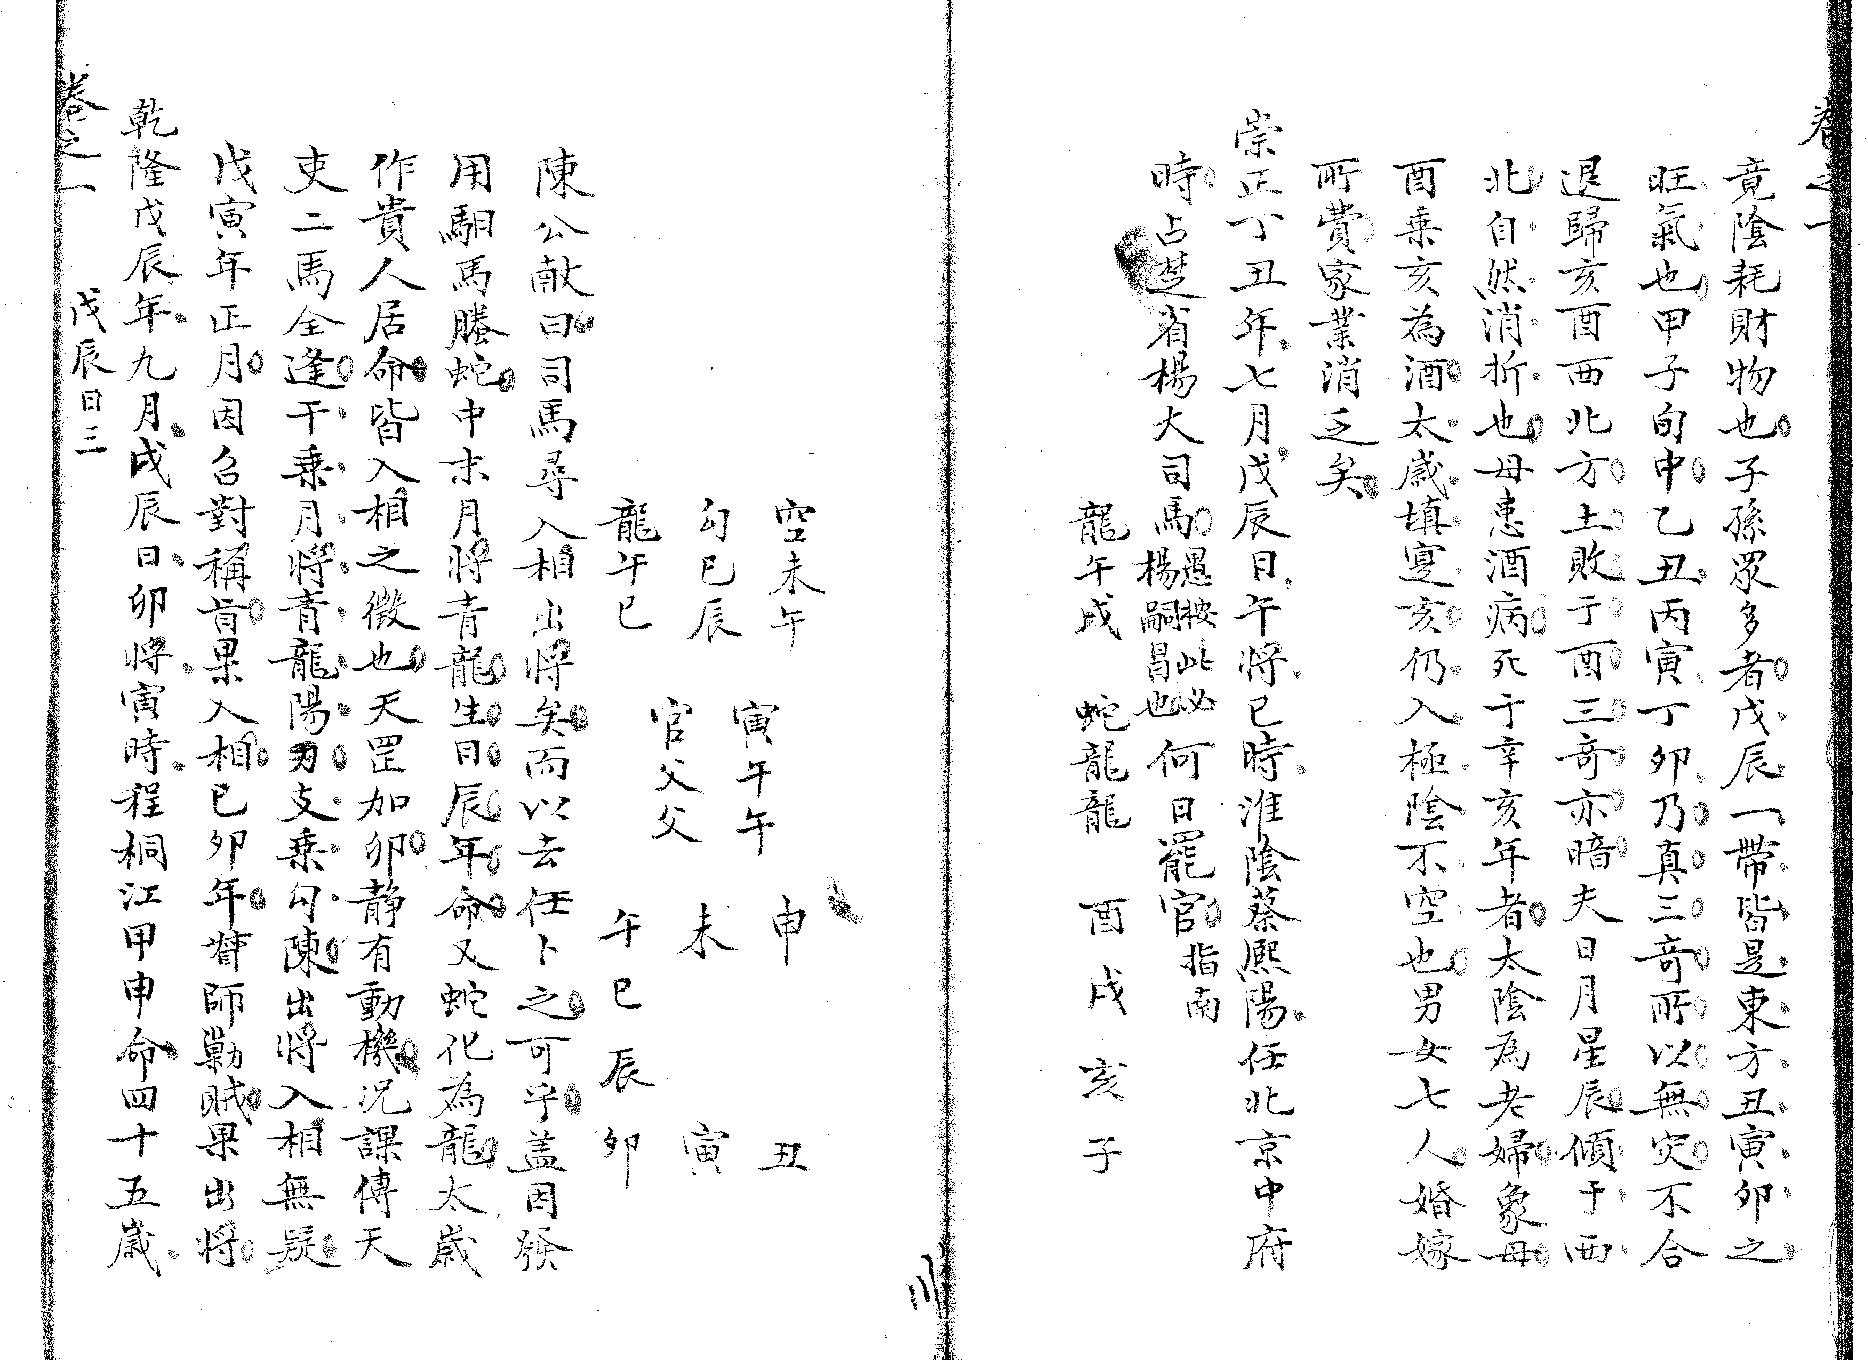 卷之一
竟陰耗財物也子孫眾多者戊辰一帶皆是東方丑寅卯之
旺氣也甲子旬中乙丑丙寅丁卯乃真三奇所以無灾不合
退歸亥酉西北方土敗于酉三奇亦暗夫日月星辰傾于西
北自然消折也母患酒病死于辛亥年者太陰為老婦象母
酉乘亥為酒太歲填寔亥仍入極陰不空也男女七人婚嫁
所費家業消乏矣
崇正丁丑年七月戊辰日午將巳時淮陰蔡熙陽任北京中府
時占楚省楊大司馬愚按此必楊嗣昌也何日罷官指南
龍午戌 蛇龍龍 酉戌亥子
空未午 寅午午 申 丑
勾巳辰 官父父 未 寅
龍午巳 午巳辰卯
陳公献曰司馬尋入相出將矣而以去任卜之可乎盖因發
用馹馬螣蛇中末月將青龍生日辰年命又蛇化為龍太歲
作貴人居命皆入相之徵也天罡加卯静有動機况課傳天
吏二馬全逢干乘月將青龍陽刃支乘勾陳出將入相無疑
戊寅年正月因召對稱旨果入相已卯年督師勦賊果出將
乾隆戊辰年九月戊辰日卯將寅時程桐江甲申命四十五歲
卷之一 戊辰日三